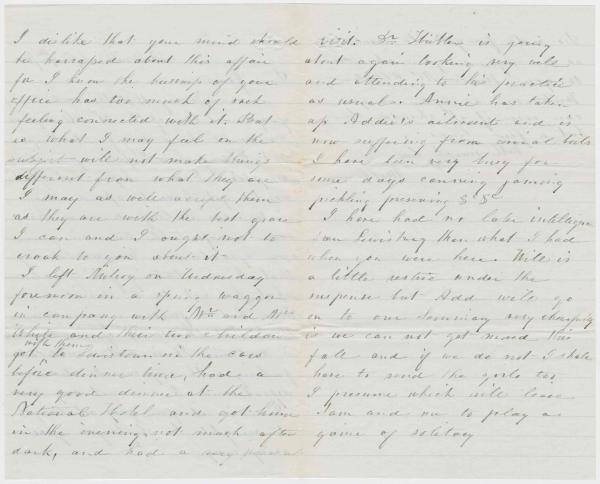 I dislike that your mind should
be harrassed about this affair
for I know the business of your
office has too much of such
feeling connected with it. But
is what I may feel on the
subject will not make things
different from what they are
I may as well accept them
as they are with the best grace
I can and I ought not to
croak to you about it
I left Milroy on Wednesday
forenoon in a spring waggon
in company with Wm and Mrs
White and their two children
with them
got to Lewistown in the cars
before dinner time, had a
very good dinner at the
National Hotel and got home
in the evening not much after
dark, and had a very
visit. Dr is going
about again looking very well
and attending to his practice
as usual. Annie has taken
up Addie's ailment and is
now suffering from boils
I have been very busy for
some days canning jamming
pickling preserving & &c
I have had no later intelligence
from Lewisburg than what I had
when you were here. Will is
a little restive under the
suspense but Add will go
on to our Seminary very cheerfully
is we can not get moved this
fall and if we do not I shall
have to send the girls too
I presume which will leave
Iam and me to play a
game of solitary